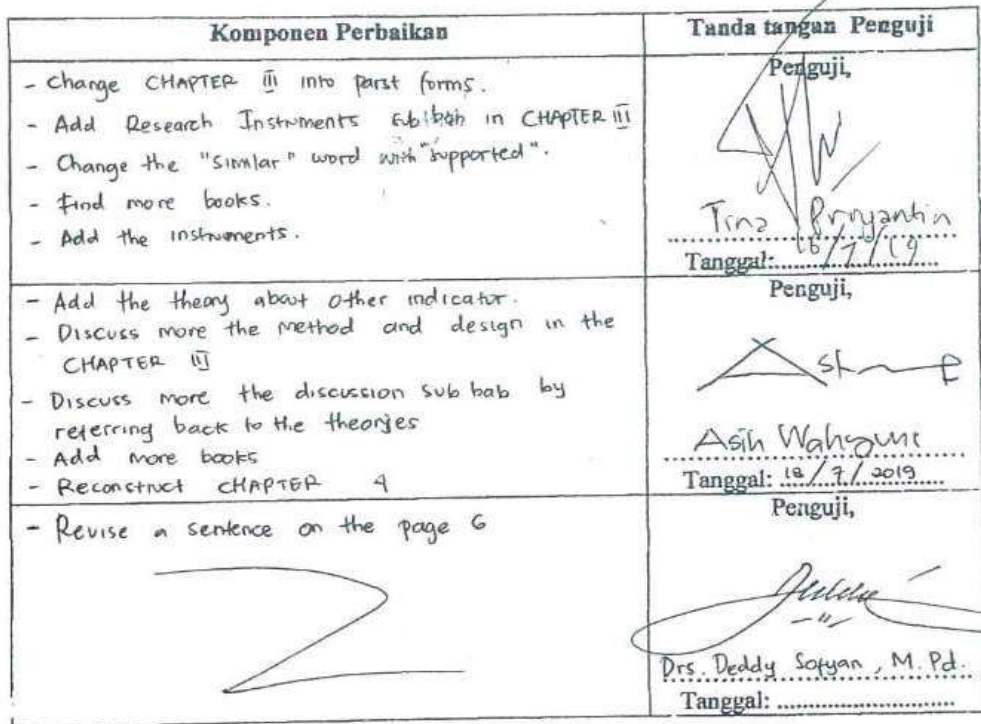 Komponen Perbaikan
Tanda tangan Penguji
- Change CHAPTER III into parst forms.
- Add Research Instruments sub bab in CHAPTER III
- Change the "Similar" word with "supported".
- Find more books.
- Add the instruments.
Penguji,
Tina Priyantin
Tanggal: 16/7/19
- Add the theory about other indicator.
- Discuss more the method and design in the
CHAPTER III
- Discuss more the discussion sub bab by
referring back to the theories
- Add more books
- Reconstruct CHAPTER 4
Penguji,
Asih Wahyuni
Tanggal: 18/7/2019
- Revise a sentence on the page 6
Penguji,
Drs. Deddy Sofyan, M.Pd.
Tanggal: